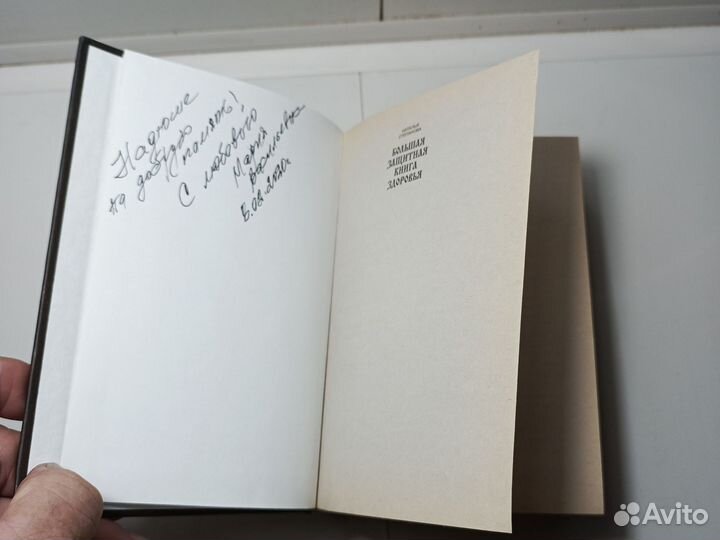 Надюше
на добрую
память!
С любовью
Мария
Васильевна
5.08.2020г.
НАТАЛЬЯ
СТЕПАНОВА
БОЛЬШАЯ
ЗАЩИТНАЯ
КНИГА
ЗДОРОВЬЯ
Avito